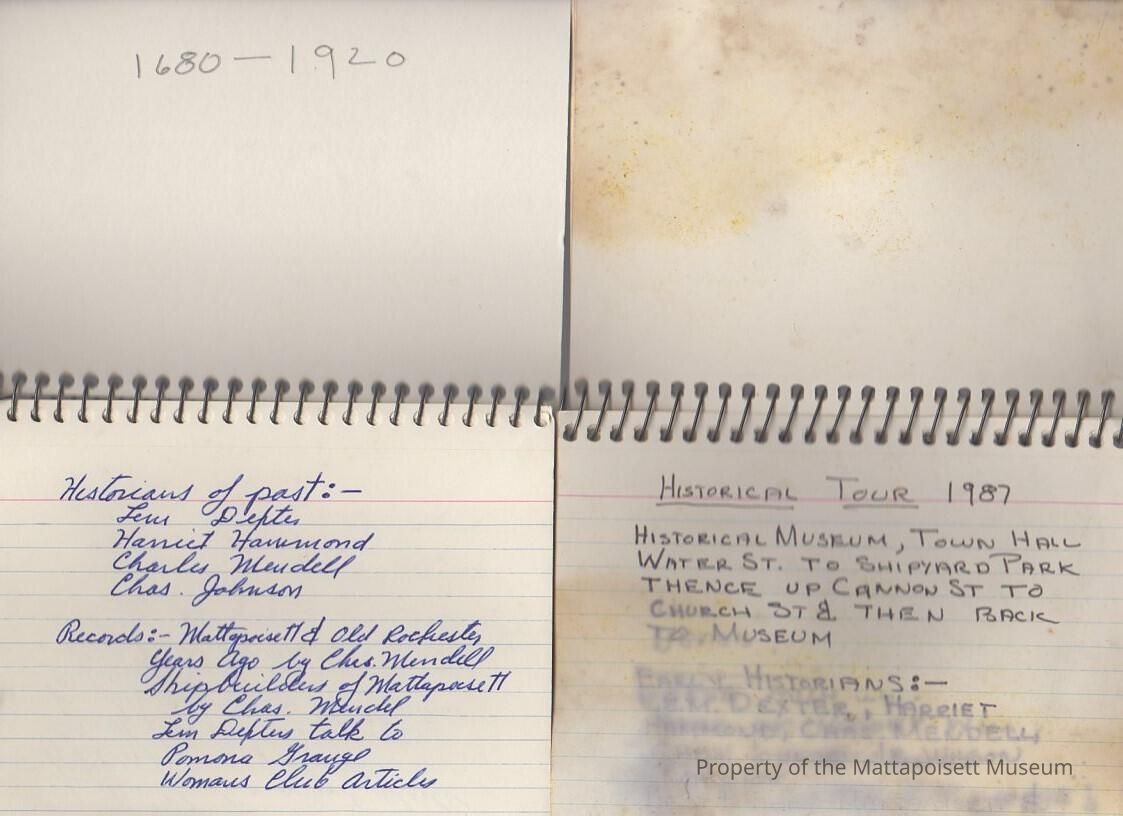 1680 — 1920
Historians of past:-
Lem Dexter
Harriet Hammond
Charles Mendell
Chas. Johnson
Records:- Mattapoisett & Old Rochester
Years Ago by Chas. Mendell
Shipbuilders of Mattapoisett
by Chas. Mendel
Lem Dexters talk to
Pomona Grange
Womans Club Articles
HISTORICAL TOUR 1987
HISTORICAL MUSEUM, TOWN HALL
WATER ST. TO SHIPYARD PARK
THENCE UP CANNON ST TO
CHURCH ST & THEN BACK
TO MUSEUM
EARLY HISTORIANS:-
LEM. DEXTER, HARRIET
HAMMOND, CHAS. MENDELL,
Property of the Mattapoisett Museum